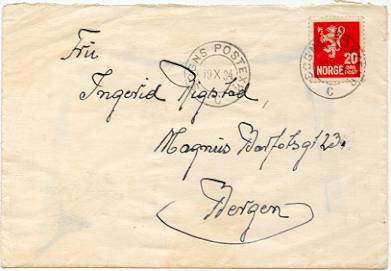 Fru
Ingerid Rigstad,
Magnus Barfotsgt 23.
Bergen
POSTEX
19 X
C
20
NORGE
C